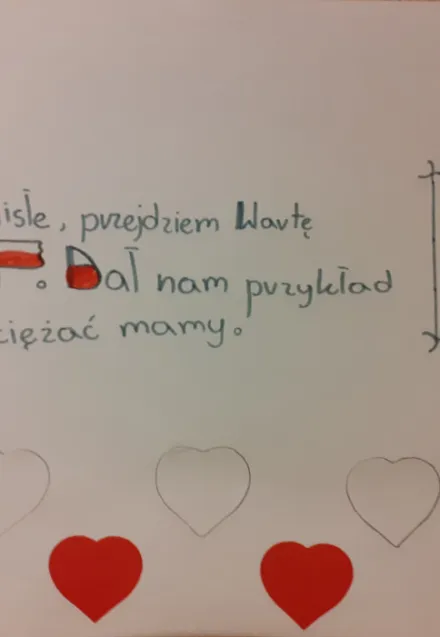 isłe, przejdziem Wartę
. Dał nam przykład
ciężać mamy.